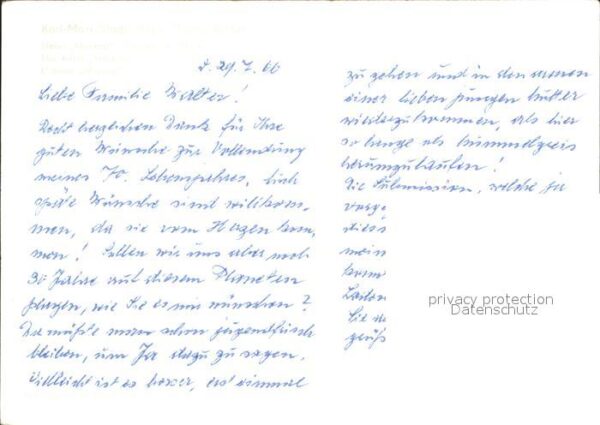 Karl-Marx-Stadt
d. 29.7.66
Liebe Familie Walter!
Recht herzlichen Dank für Ihre
guten Wünsche zur Vollendung
meines 70. Lebensjahres, auch
späte Wünsche sind willkom-
men, da sie vom Herzen kom-
men! Sollen wir uns aber noch
30 Jahre auf diesem Planeten
plagen, wie Sie es mir wünschen?
Da müßte man schon jugendfrisch
bleiben, um Ja dazu zu sagen.
Vielleicht ist es besser, erst einmal
zu gehen und in den Armen
einer lieben jungen Mutter
wiederzukommen, als hier
so lange als Himmelgreis
herumzulaufen!
Die Submission, welche ja
vorge
diese
mein
komm
Sie
grüß
privacy protection
Datenschutz